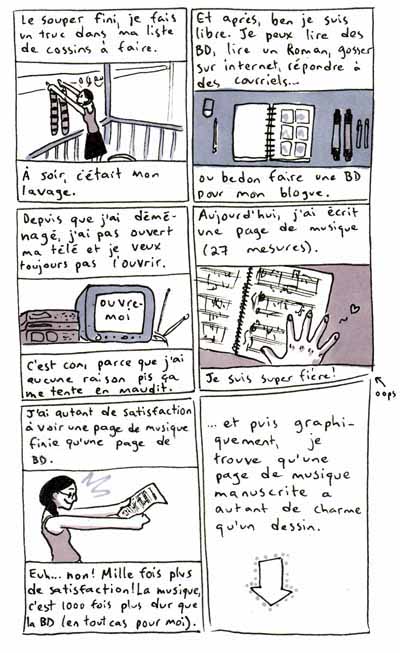 Le souper fini, je fais
un truc dans ma liste
de cossins à faire.
À soir, c'était mon
lavage.
Et après, ben je suis
libre. Je peux lire des
BD, lire un Roman, gosser
sur internet, répondre à
des courriels...
ou bedon faire une BD
pour mon blogue.
Depuis que j'ai démé-
nagé, j'ai pas ouvert
ma télé et je veux
toujours pas l'ouvrir.
OUVRE-
MOI
C'est con, parce que j'ai
aucune raison pis ça
me tente en maudit.
Aujourd'hui, j'ai écrit
une page de musique
(27 mesures).
Je suis super fière!
oops
J'ai autant de satisfaction
à voir une page de musique
finie qu'une page de
BD.
Euh... non! Mille fois plus
de satisfaction! La musique,
c'est 1000 fois plus dur que
la BD (en tout cas pour moi).
... et puis graphi-
quement, je
trouve qu'une
page de musique
manuscrite a
autant de charme
qu'un dessin.